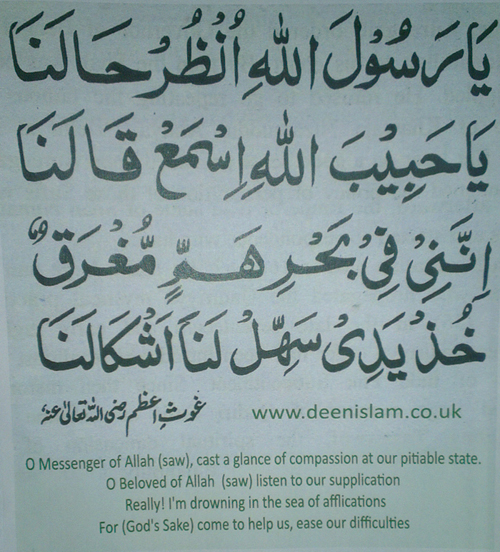 يَا رَسُوْلَ اللهِ اُنْظُرْ حَالَنَا
يَا حَبِيْبَ اللهِ اِسْمَعْ قَالَنَا
اِنَّنِيْ فِيْ بَحْرِ هَمٍّ مُّغْرَقٌ
خُذْ يَدِىْ سَهِّلْ لَنَا اَشْكَالَنَا
غوثِ اعظم رضی اللہ تعالیٰ عنہ www.deenislam.co.uk
O Messenger of Allah (saw), cast a glance of compassion at our pitiable state.
O Beloved of Allah (saw) listen to our supplication
Really! I'm drowning in the sea of afflications
For (God's Sake) come to help us, ease our difficulties